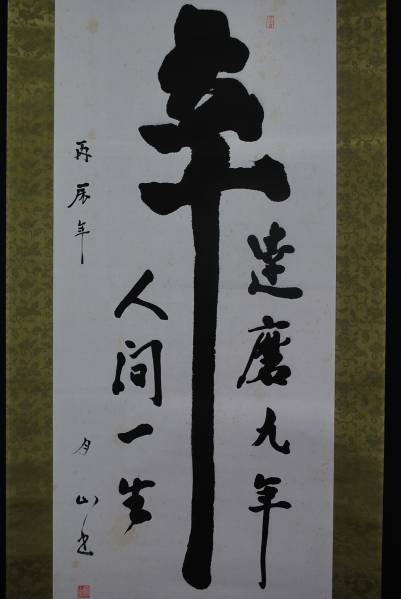 辛
達磨九年
人間一生
丙辰年
月山書